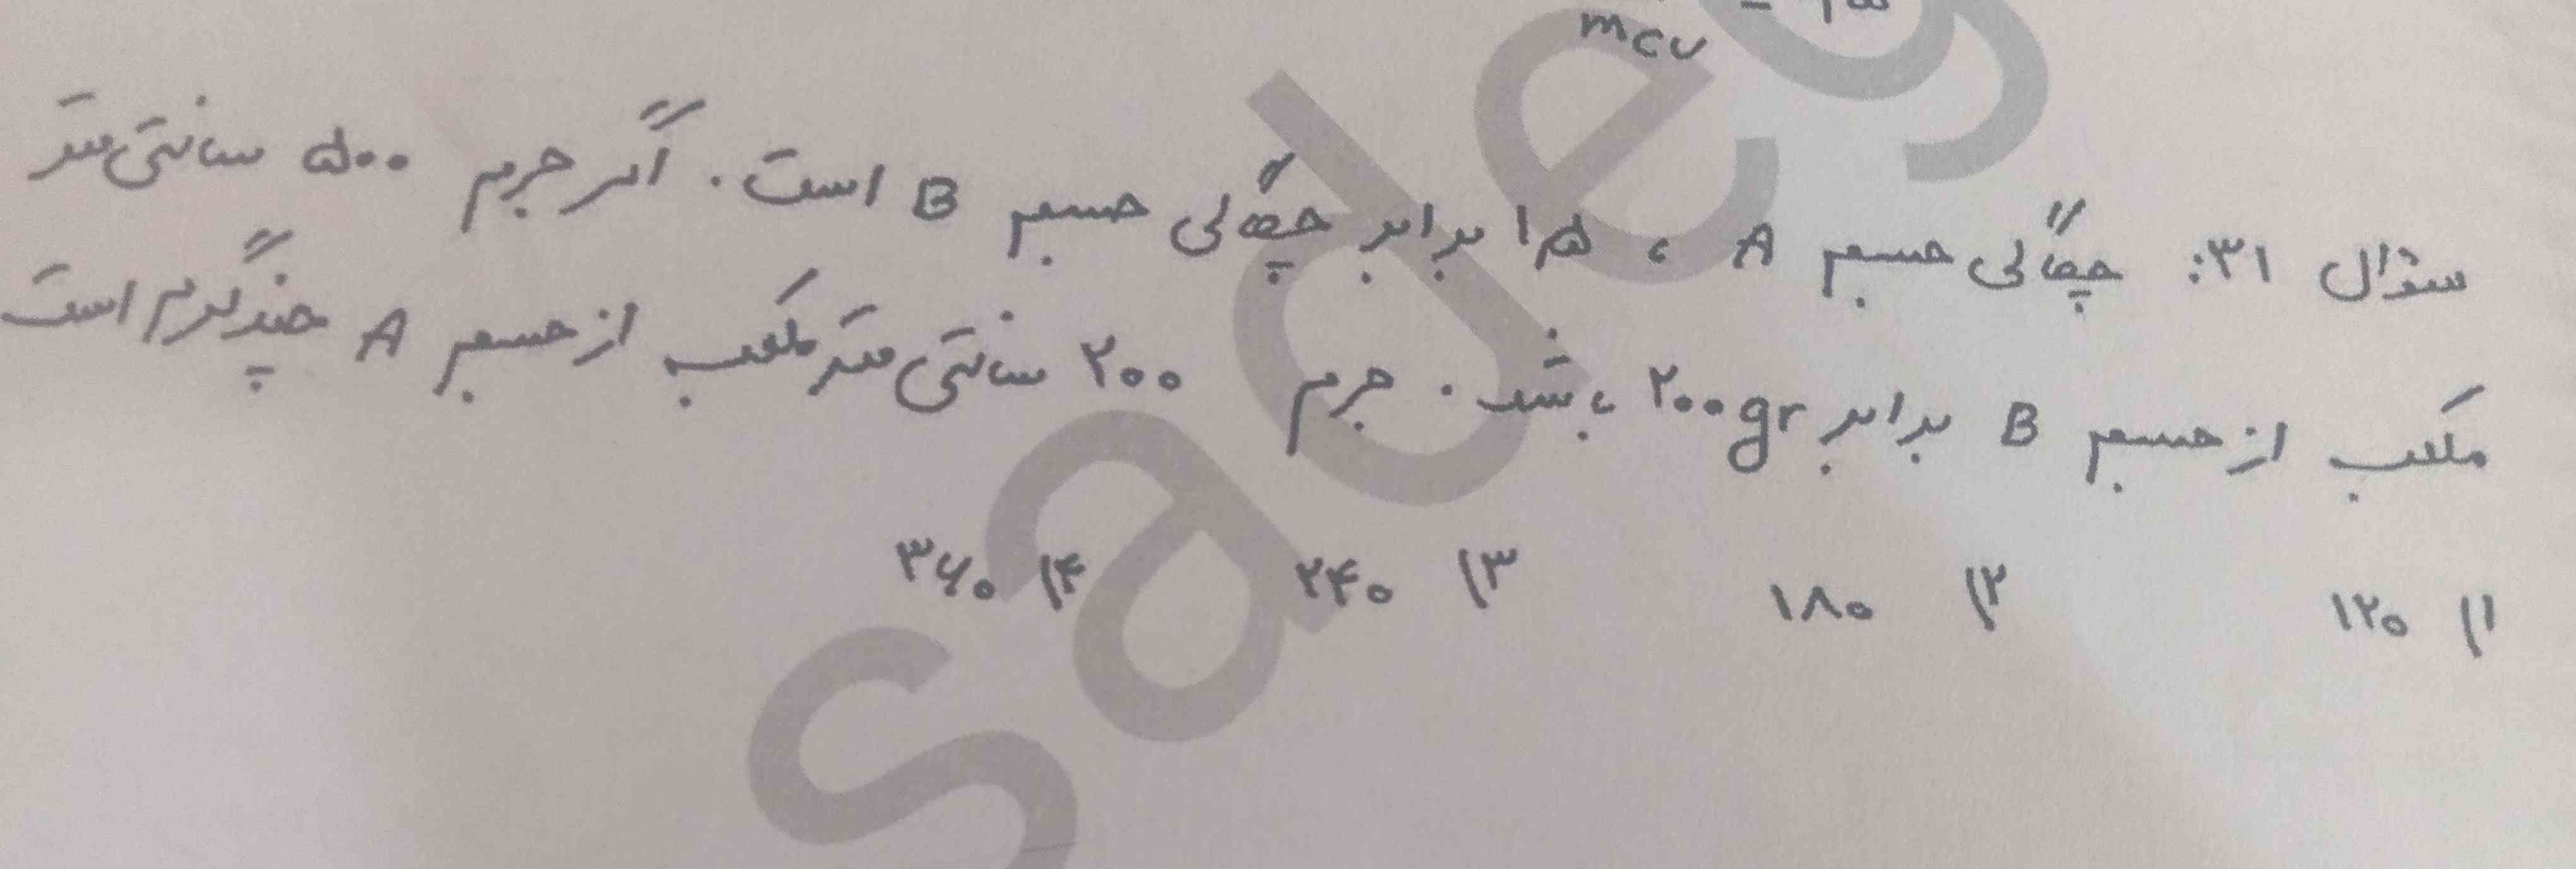 mcv
سؤال ۳۱: چگالی جسم A ، ۱٫۵ برابر چگالی جسم B است. اگر جرم ۵۰۰ سانتی‌متر
مکعب از جسم B برابر ۲۰۰gr باشد. جرم ۲۰۰ سانتی‌متر مکعب از جسم A چند گرم است
۱) ۱۲۰ ۲) ۱۸۰ ۳) ۲۴۰ ۴) ۳۶۰
sadeg